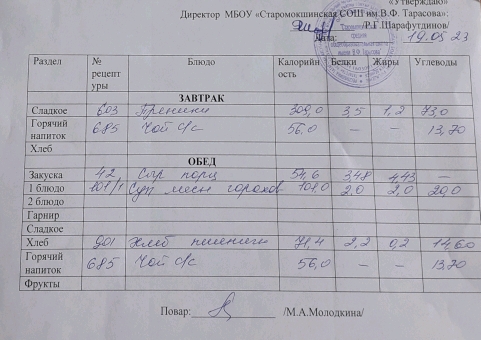 «Утверждаю»
Директор МБОУ «Старомокшинская СОШ им.В.Ф. Тарасова»:
/Р.Г.Шарафутдинов/
Дата: 19.05 23
Раздел № рецептуры Блюдо Калорийность Белки Жиры Углеводы
ЗАВТРАК
Сладкое 603 Пряники 309,0 3,5 1,2 73,0
Горячий напиток 685 Чай с/с 56,0 – – 13,70
Хлеб
ОБЕД
Закуска 42 Сыр порц 54,6 3,48 4,43 –
1 блюдо Суп 101,0 2,0 2,0 20,0
2 блюдо
Гарнир
Сладкое
Хлеб 901 Хлеб 71,4 2,2 0,2 14,60
Горячий напиток 685 Чай с/с 56,0 – – 13,70
Фрукты
Повар: /М.А.Молодкина/